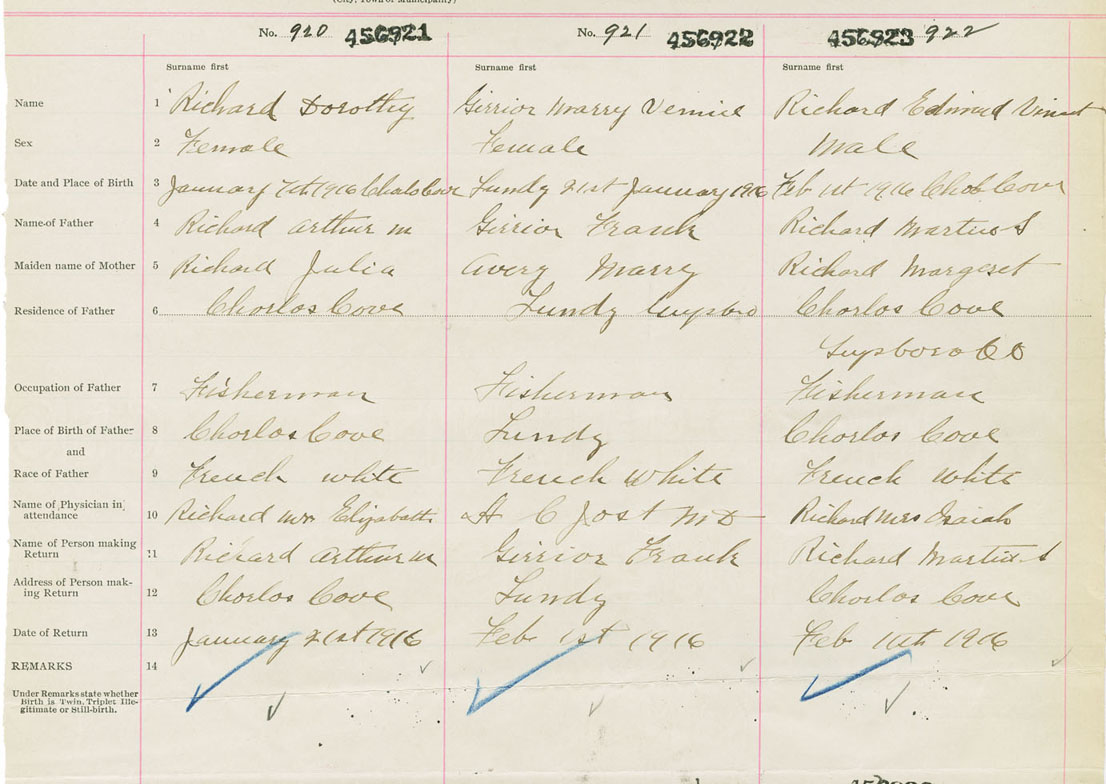 (City, Town or Municipality)
No. 920 456921 No. 921 456922 456923 922
Surname first Surname first Surname first
Name 1 Richard Dorothy Girrior Marry Vernice Richard Edmund Vincent
Sex 2 Female Female Male
Date and Place of Birth 3 January 7th 1916 Chalos Cove Lundy 21st January 1916 Feb 1st 1916 Chos Cove
Name of Father 4 Richard Arthur M Girrior Frank Richard Martin S
Maiden name of Mother 5 Richard Julia Avery Marry Richard Margeret
Residence of Father 6 Chorlos Cove Lundy Guysboro Chorlos Cove
Guysboro Co
Occupation of Father 7 Fisherman Fisherman Fisherman
Place of Birth of Father 8 Chorlos Cove Lundy Chorlos Cove
and
Race of Father 9 French white French White French white
Name of Physician in
attendance 10 Richard Mrs Elizabeth H C Jost MD Richard Mrs Isaiah
Name of Person making
Return 11 Richard Arthur M Girrior Frank Richard Martin S
Address of Person mak-
ing Return 12 Chorlos Cove Lundy Chorlos Cove
Date of Return 13 January 21st 1916 Feb 1st 1916 Feb 10th 1916
REMARKS 14
Under Remarks state whether
Birth is Twin, Triplet Ille-
gitimate or Still-birth.